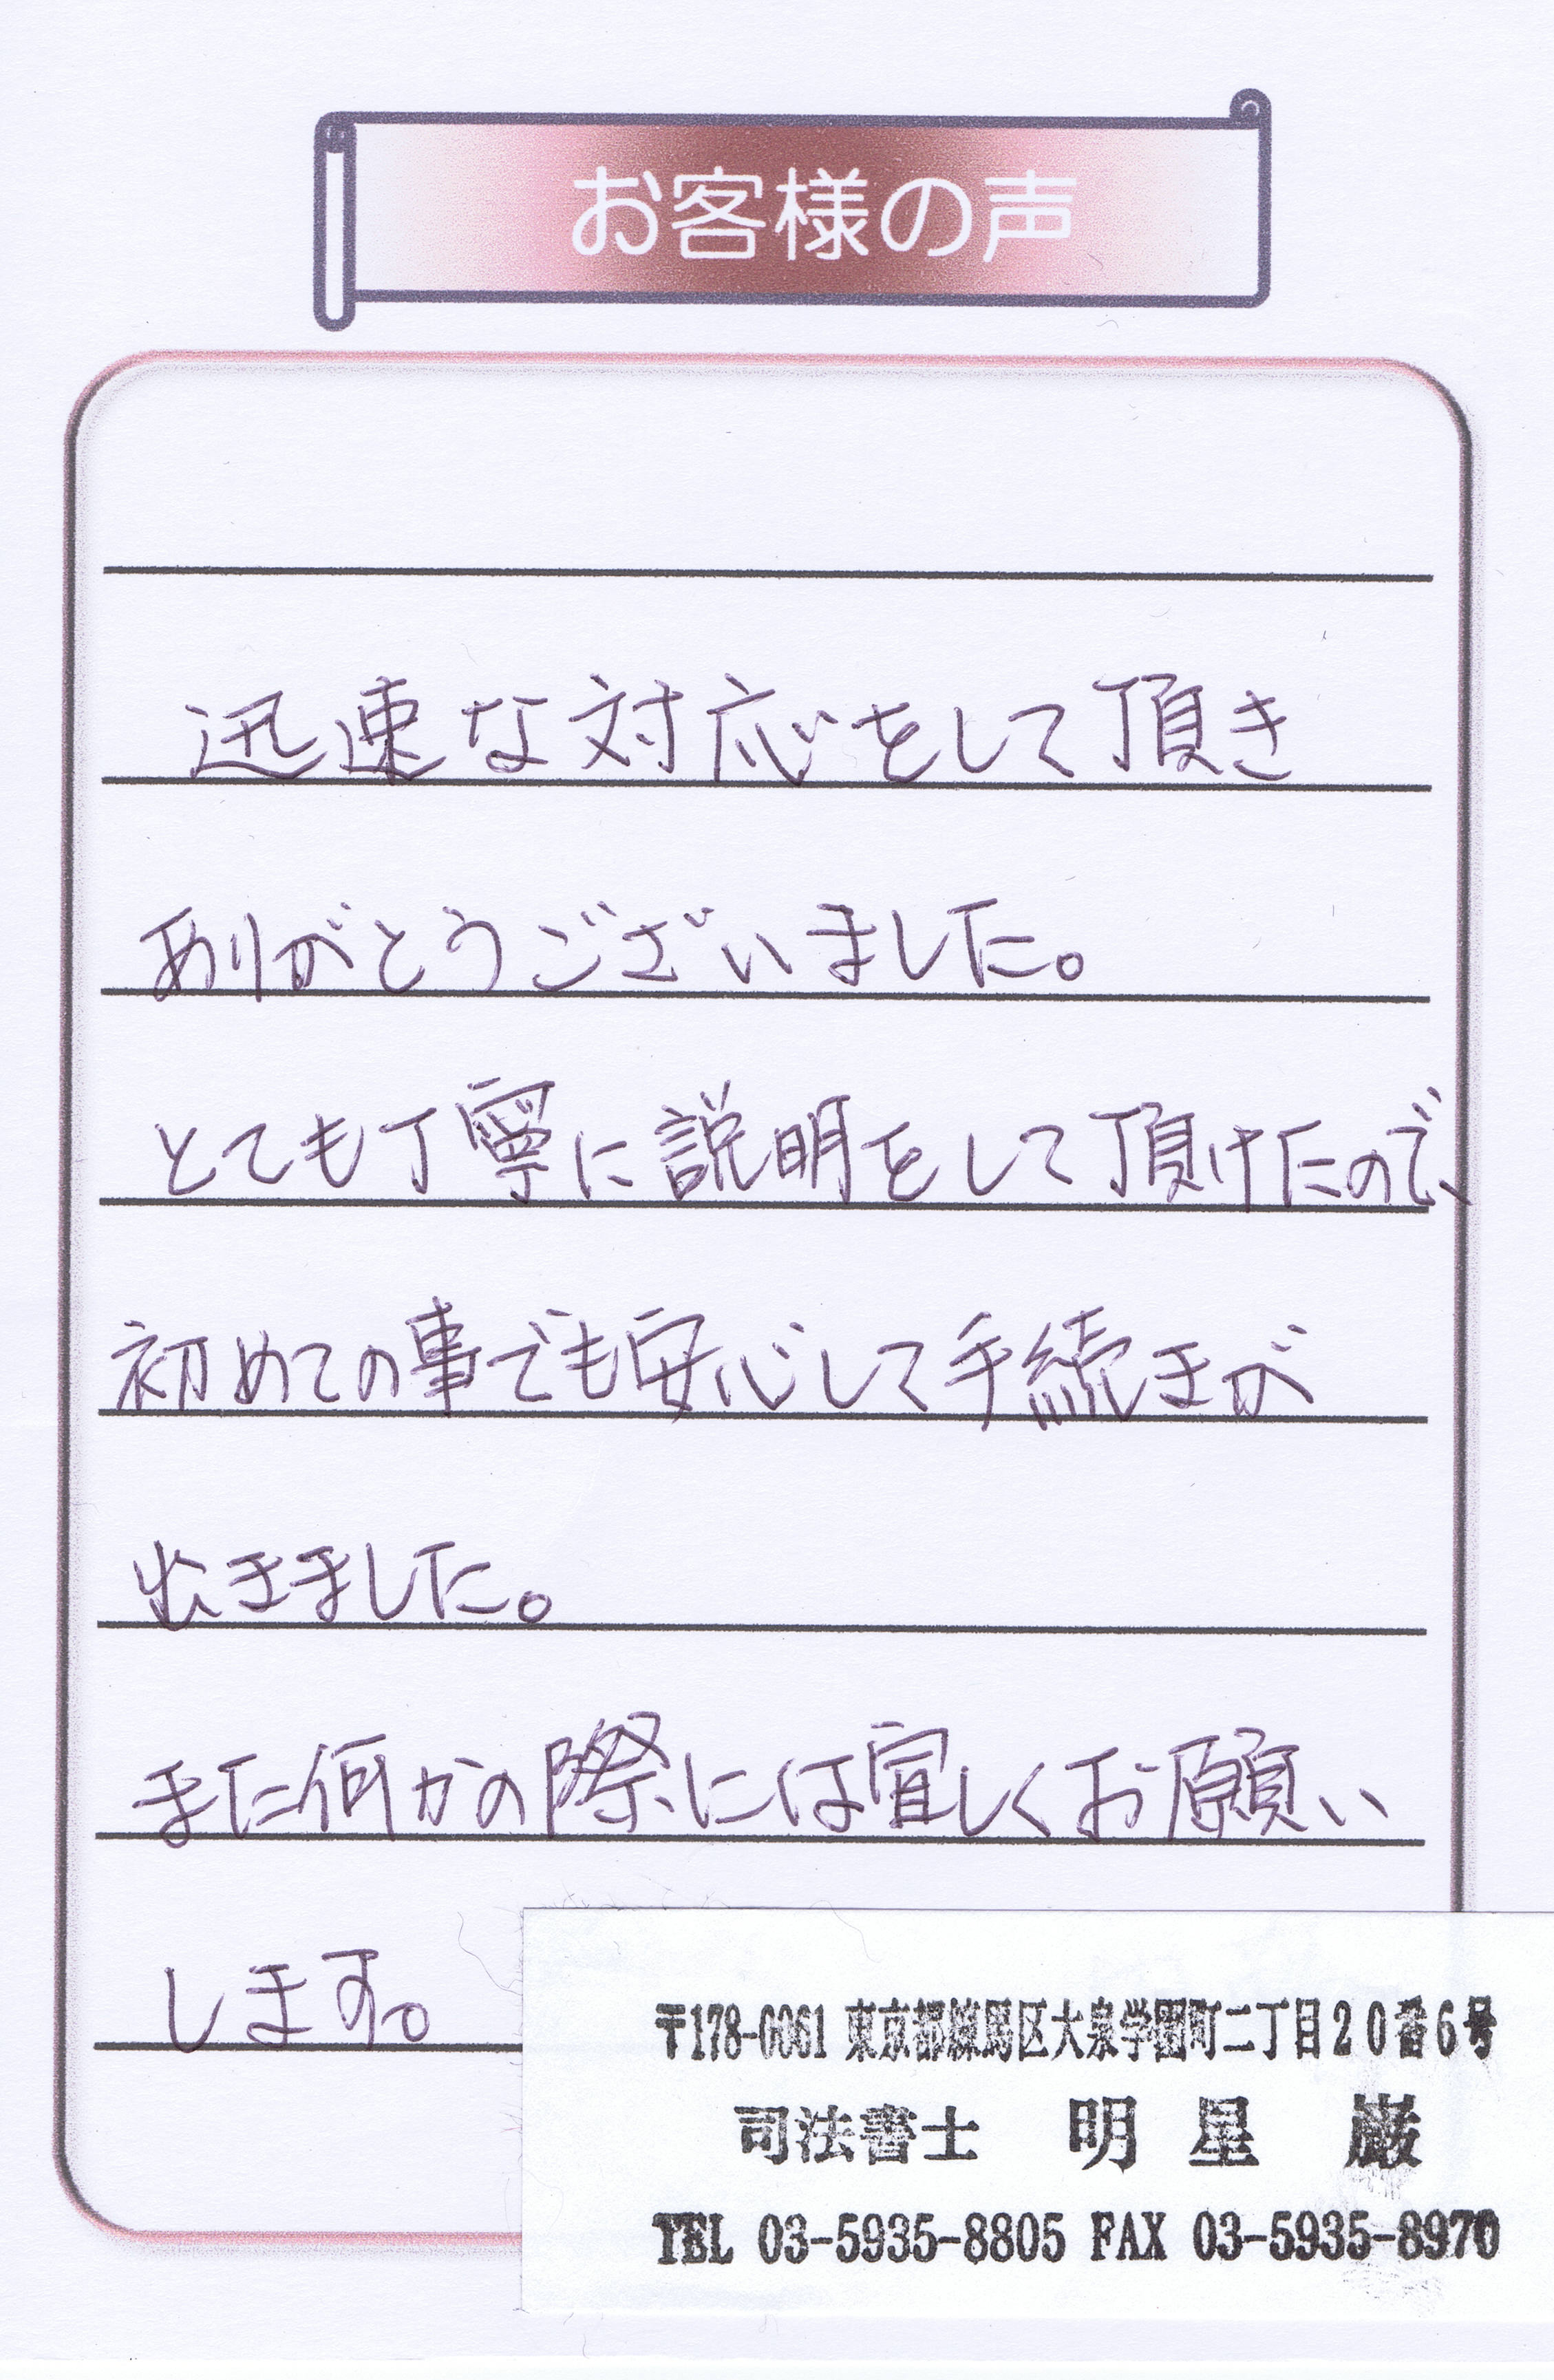 お客様の声
迅速な対応をして頂き
ありがとうございました。
とても丁寧に説明をして頂けたので、
初めての事でも安心して手続きが
出きました。
また何かの際には宜しくお願い
します。
〒178-0061 東京都練馬区大泉学園町二丁目20番6号
司法書士 明星 巌
TEL 03-5935-8805 FAX 03-5935-8970